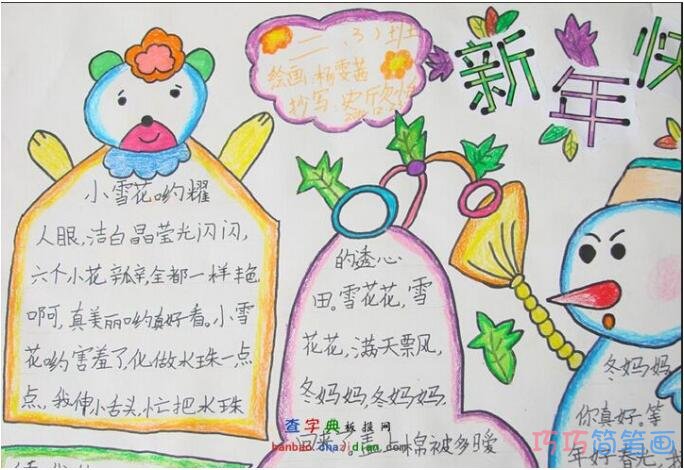 二(3)班
绘画:杨雯茜
抄写:史欣怡
新年快
小雪花哟耀
人眼,洁白晶莹光闪闪,
六个小花瓣辛,全都一样丰色
啊可,真美丽哟真好看。小雪
花哟害羞了,化做水珠一点
点,我伸小舌头,忙把水珠
的透心
田。雪花花,雪
花花,满天票风,
冬妈妈,冬妈妈,
冬妈妈
你真好。等
查字典板报网
hanbao.chazidian.com
巧巧简笔画